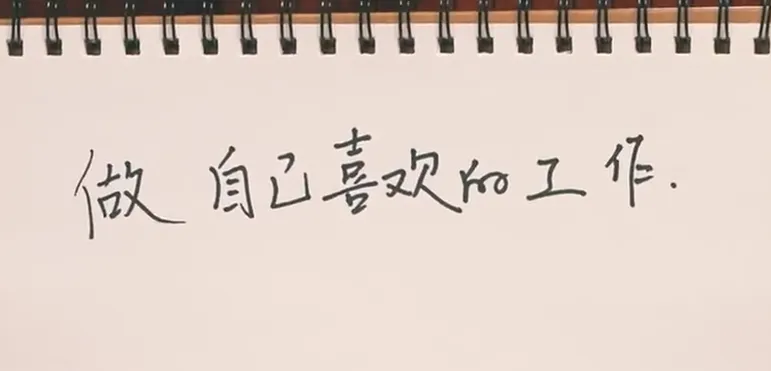 做自己喜欢的工作.